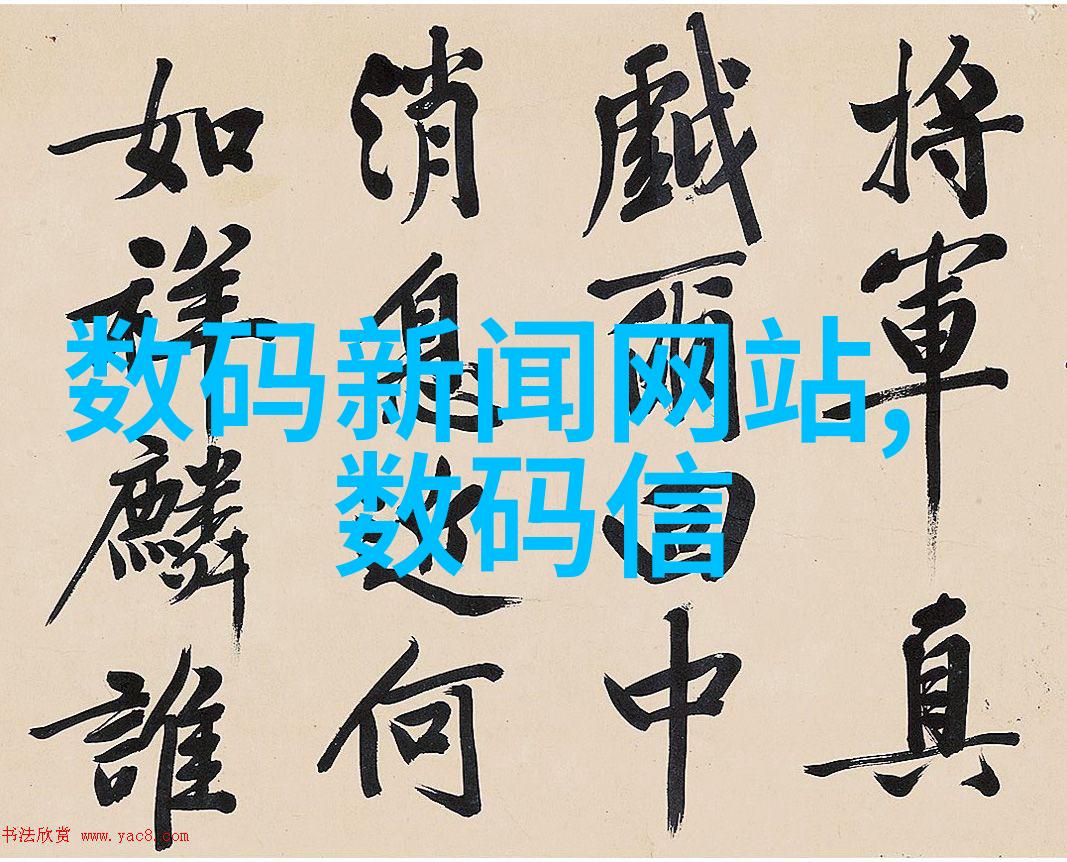 数码新闻网站,
数码信
将軍真
戱中
消息何
如祥麟誰
书法欣赏 www.yac8.com